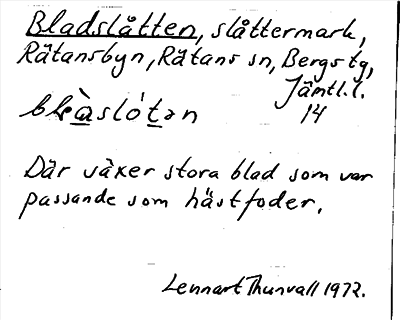 Bladslåtten, slåttermark,
Rätansbyn, Rätans sn, Bergs tg,
Jämtl.l.
14
Där växer stora blad som var
passande som hästfoder.
Lennart Thunvall 1972.